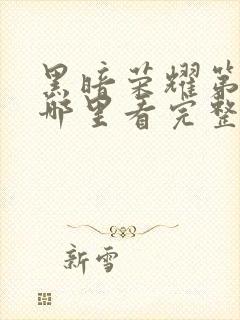 黑暗荣耀第
哪里看完整
新雪